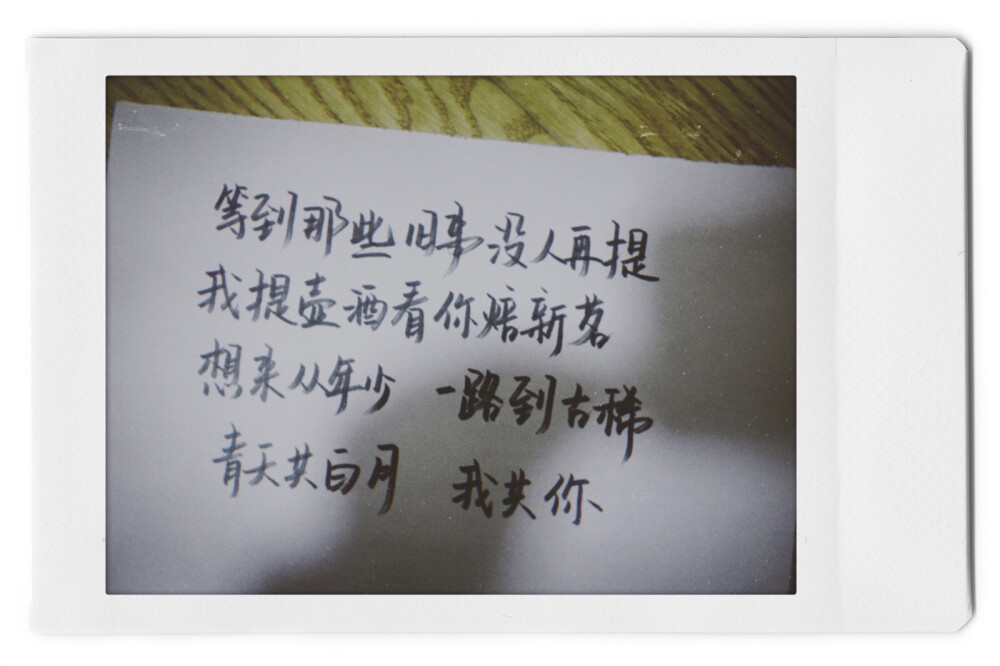 等到那些旧事没人再提
我提壶酒看你焙新茗
想来从年少 一路到古稀
青天共白月 我共你